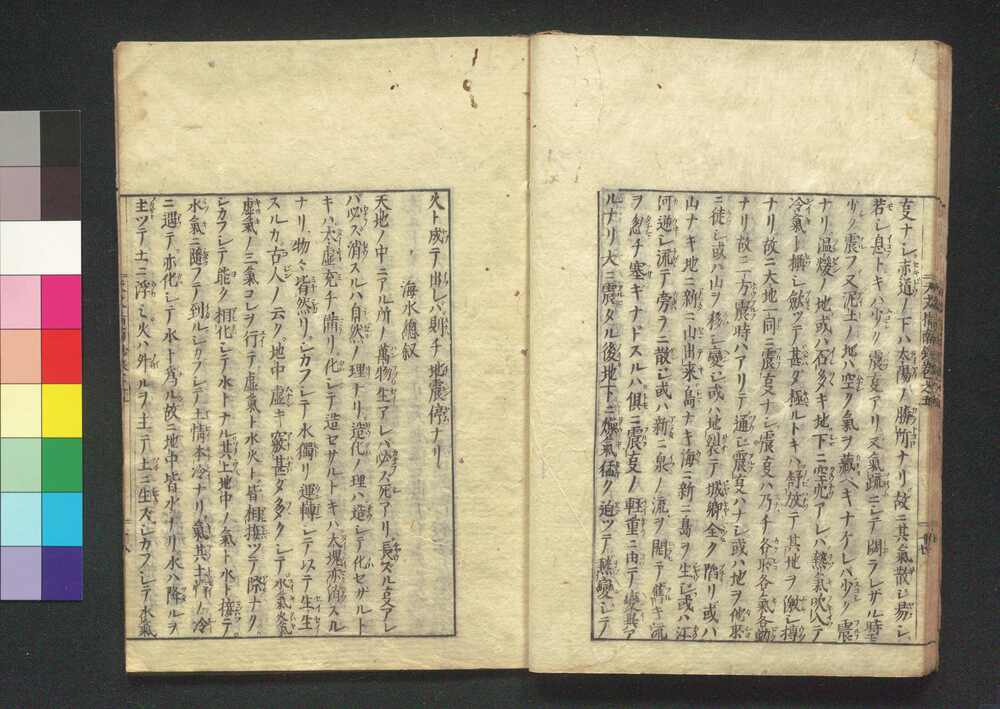 支ナシ赤道ノ下ハ太陽ノ勝所ナリ故ニ其氣散シ易シ
若シ息トキハ少ク震支アリ又氣疏ニシテ閉ラレザル時モ
少ノ震フ又泥土ノ地ハ空ク氣ヲ藏ヘキナケレバ少ク震
ナリ温煖ノ地或ハ石多キ地下ニ空穴アレハ熱氣吹入テ
冷氣ト攝シ斂ツテ甚タ極ルトキハ舒放テ其地ヲ激シ摶
ナリ故ニ大地一同ニ震支ナシ震支ハ乃チ各水各氣各動
ナリ故ニ一方震時ハアリテ通シ震支ハナシ或ハ地ヲ他所
ニ徙シ或ハ山ヲ移シ變シ或ハ地裂テ城郷全ク陷リ或ハ
山ナキ地ニ新ニ山出来島ナキ海ニ新ニ島ヲ生シ或ハ江
河逆シ流テ旁ラニ散シ或ハ新ニ泉ノ流ヲ開テ舊キ流
ヲ忽チ塞キナドスルハ俱ニ震支ノ軽重ニ由テ變異ア
ルナリ大ニ震タル後地下ニ燥氣猛ク迫ツテ熱變シテ
火ト成テ出レバ則チ地震停ナリ
海水總叙
天地ノ中ニアル所ノ萬物生アレバ必ス死アリ長スル支アレ
バ必ス消スルハ自然ノ理ナリ造化ノ理ハ造シテ化セザルト
キハ太虚充チ備リ化シテ造セサルトキハ大塊亦消スル
ナリ物ミ皆然リシカフシテ水獨リ運轉シテ以テ生生
スルカ古人ノ云ク地中虚キ竅甚タ多クシテ水氣火氣
虚氣ノ三氣コレヲ行テ虚氣ト水火ト皆相接ツテ隙ナク
シカラシテ能ク相化シテ水トナル其上地中ノ氣ト水ト接テ
水氣ニ隨フテ到ルシカフシテ土ノ情本冷ナリ氣其土ノ冷
ニ遇テ亦化シテ水ト為ル故ニ地中皆水ナリ水ハ降ルヲ
主ツテ土ニ浮ミ火ハ外ルヲ主テ土ニ生スシカフシテ水氣